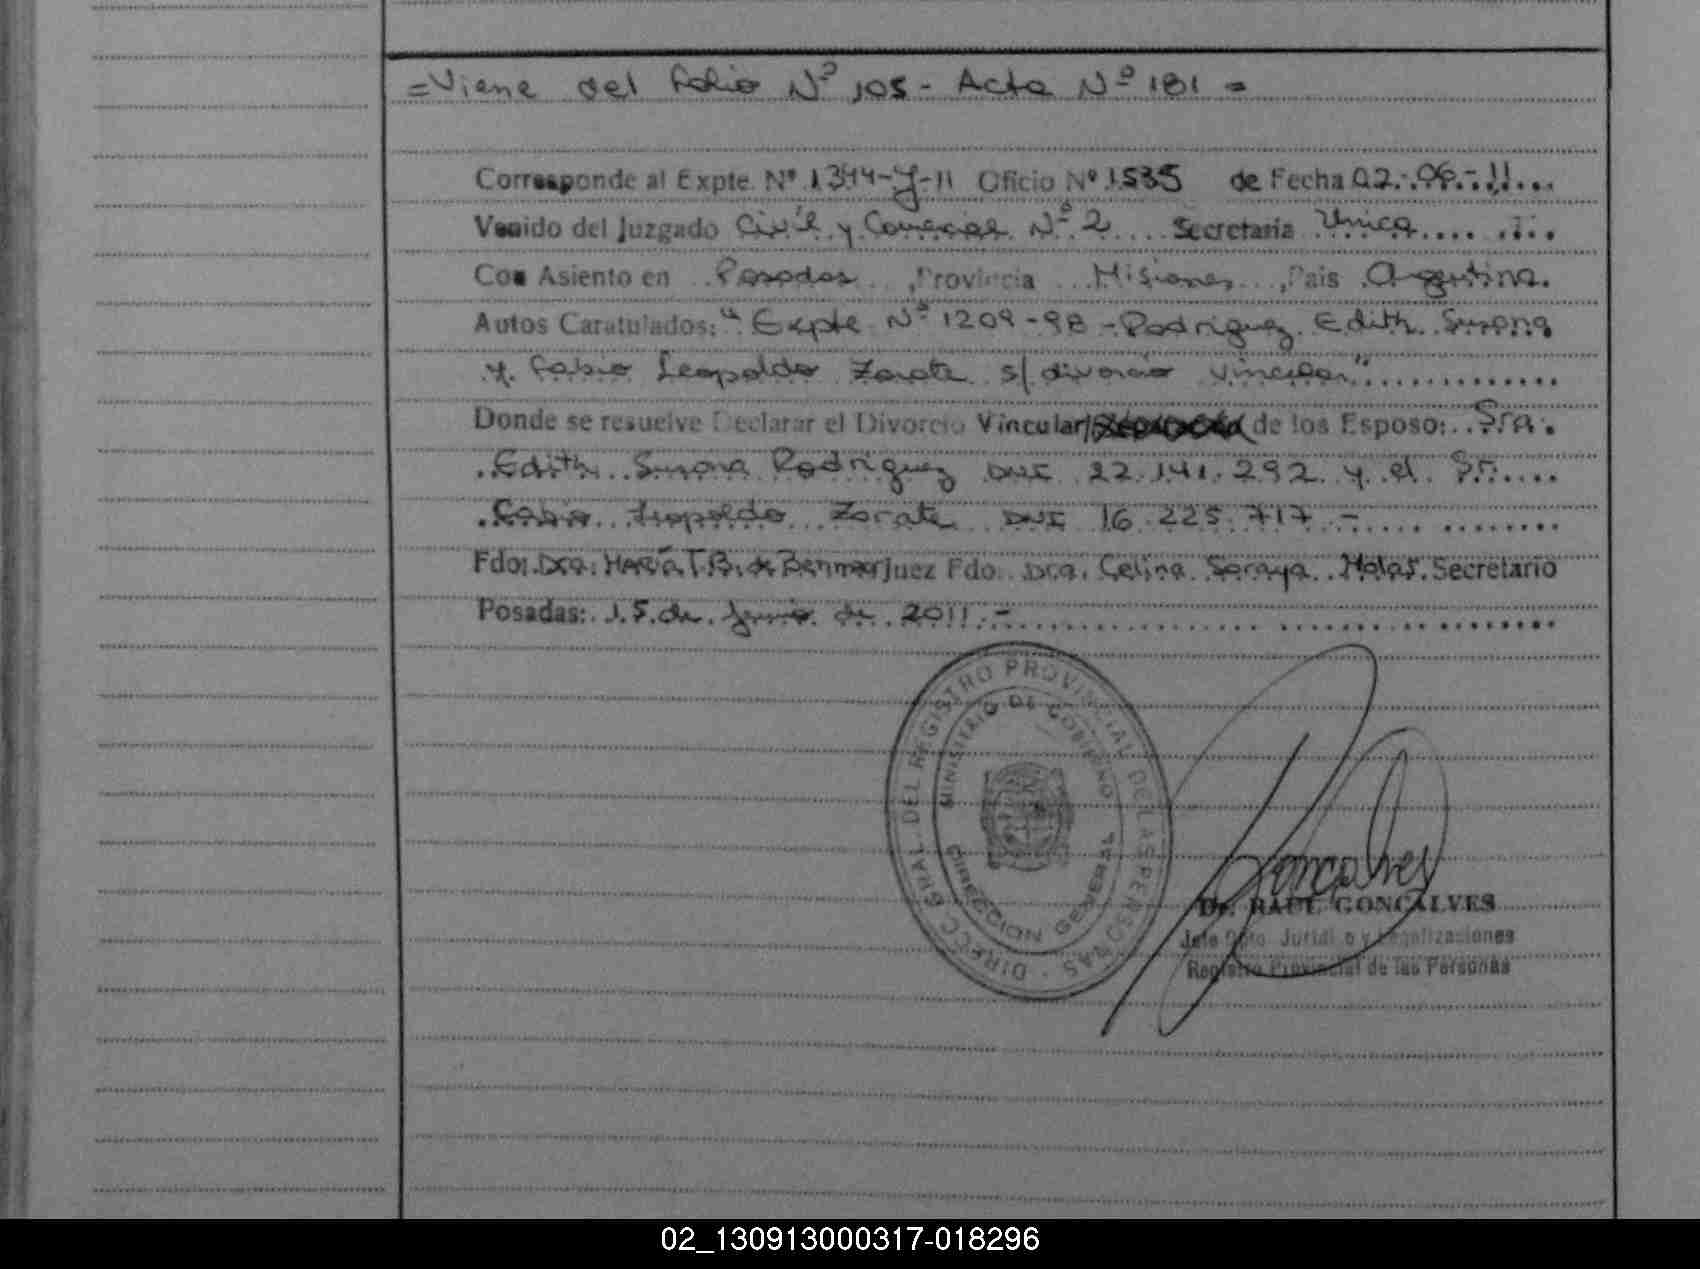 =Viene del folio Nº 105 - Acta Nº 181 =
Corresponde al Expte. Nº 1344-J-11 Oficio Nº 1535 de Fecha 02-06-11
Venido del Juzgado Civil y Comercial Nº 2 Secretaria Unica
Con Asiento en Posadas, Provincia Misiones, Pais Argentina.
Autos Caratulados: "Expte Nº 1209-98 - Rodriguez Edith Susana
y Fabio Leopoldo Zarate s/ divorcio vincular"
Donde se resuelve Declarar el Divorcio Vincular/ de los Esposo: Sra.
Edith Susana Rodriguez DNI 22.141.292 y el Sr.
Fabio Leopoldo Zarate DNI 16.225.717.-
Fdo: Dra. María T.B. de Juez Fdo. Dra. Celina Soraya Secretario
Posadas: 15 de Junio de 2011.-
DIRECC. GRAL. DEL REGISTRO PROVINCIAL DE LAS PERSONAS
MINISTERIO DE GOBIERNO
DIRECCION GENERAL
Goncalves
Dr. RAUL GONCALVES
Jefe Dpto. Juridico y Legalizaciones
Registro Provincial de las Personas
02_130913000317-018296